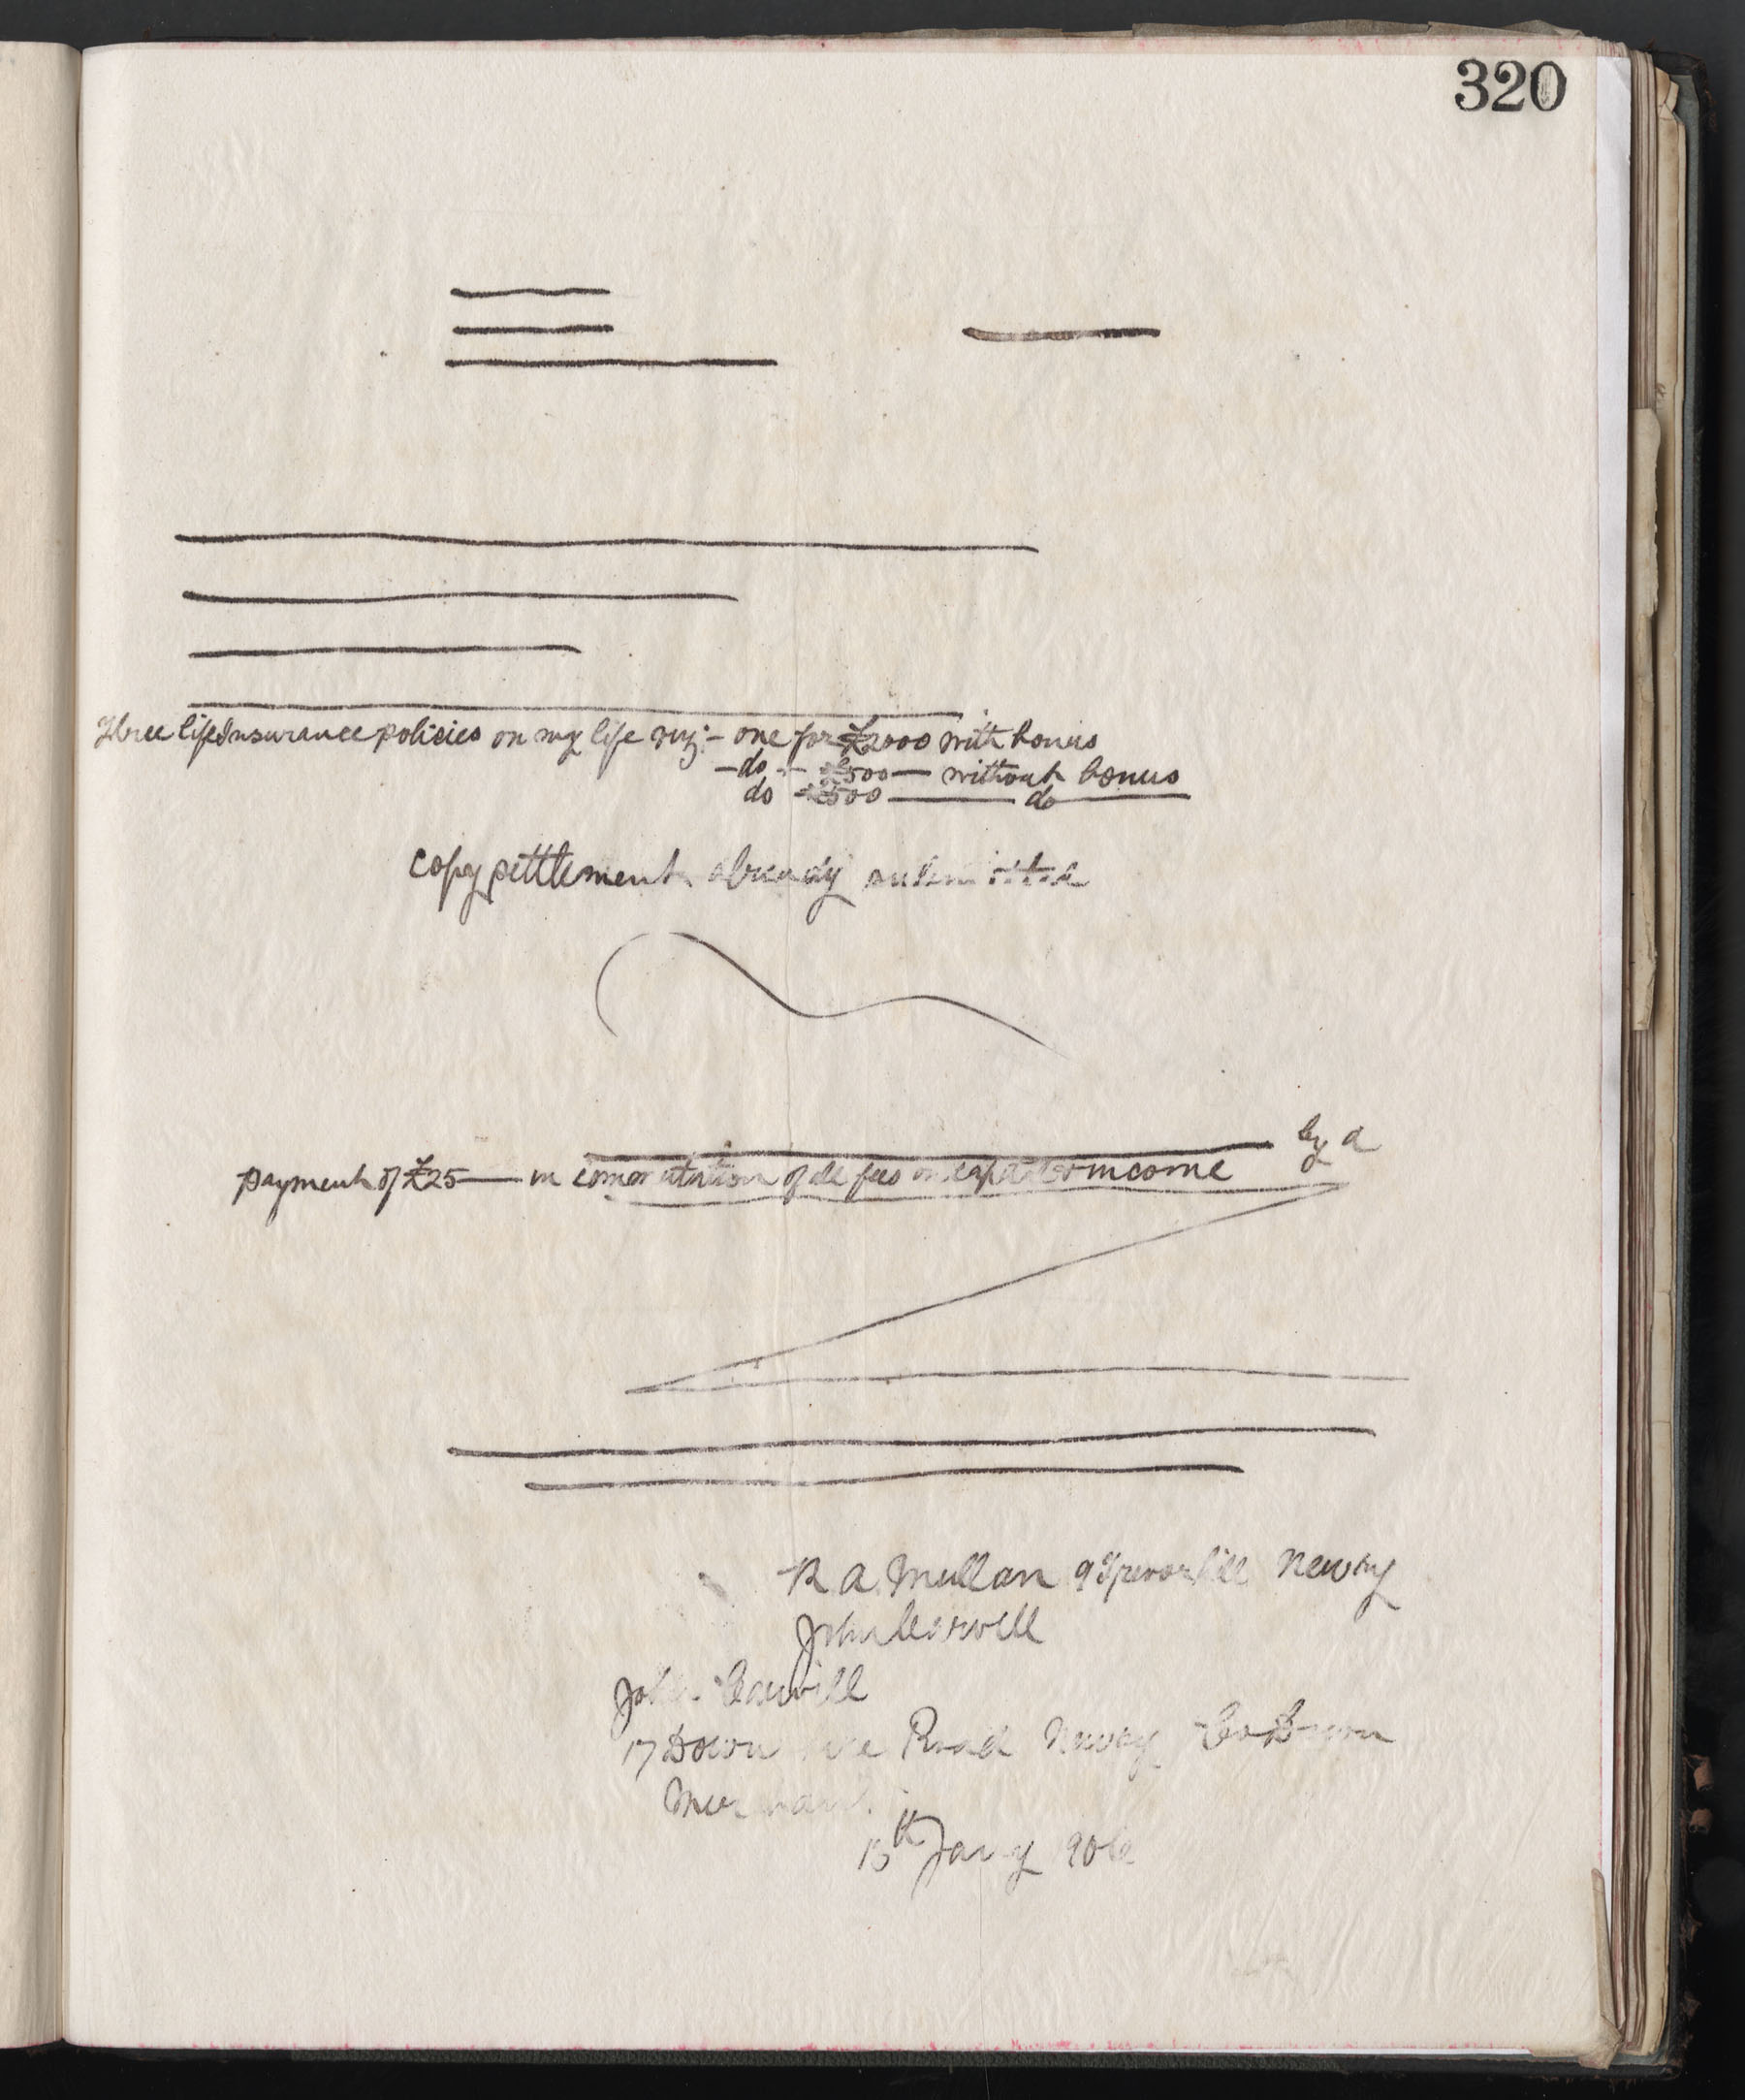 320
Three life Insurance policies on my life viz:- one for £2000 with bonus
- do - £500 - without bonus
do £500 - do
copy settlement already submitted
by a
payment of £25 - in commutation of all fees on capital or income
R A Mullan 9 Trevor hill Newry
John
John
17 Down Road Newry Co Down
15th Jany 1906